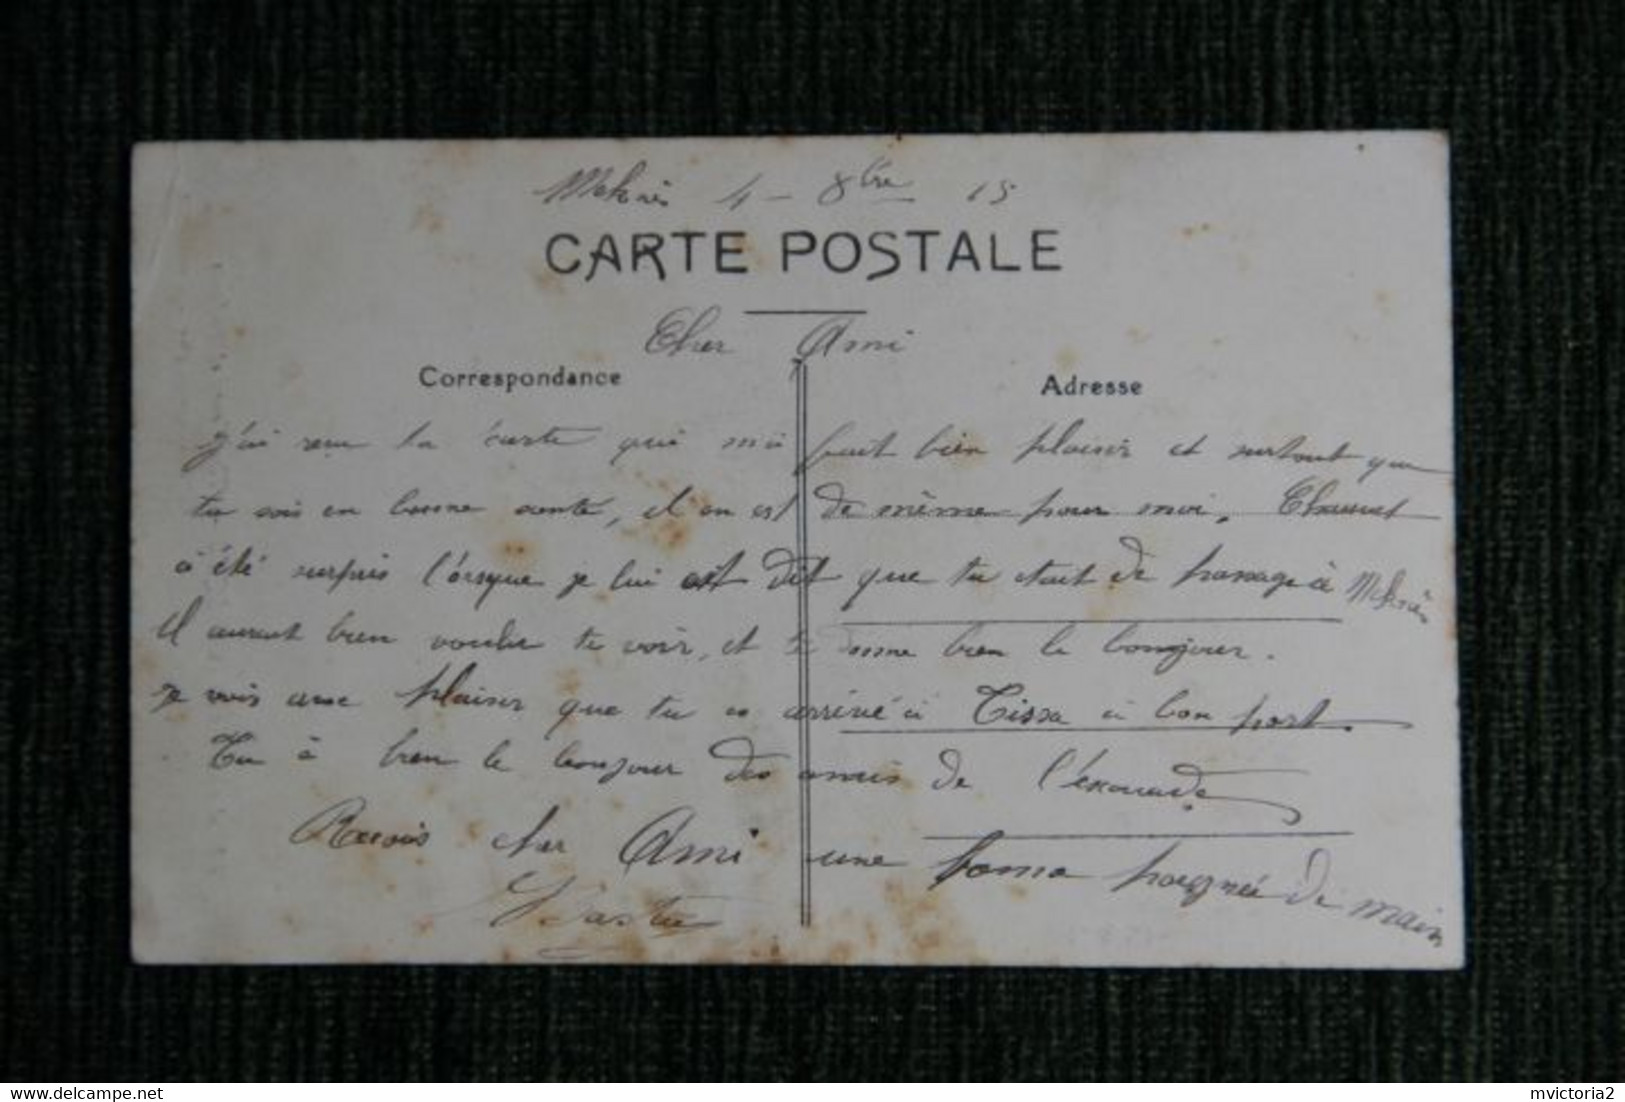 Meknès 4 - 8bre 15
CARTE POSTALE
Cher Ami
Correspondance
Adresse
J'ai reçu ta carte qui m'a fait bien plaisir et surtout que
tu sois en bonne santé, il en est de même pour moi. Chauvet
à été surpris l'orsque je lui est dit que tu était de passage à Meknès
Il aurait bien voulu te voir, et te donne bien le bonjour.
Je vois avec plaisir que tu es arrivé à Tissa à bon port.
Tu à bien le bonjour des amis de l'éscouade
Reçois cher Ami une bonne poignée de main
mvictoria2